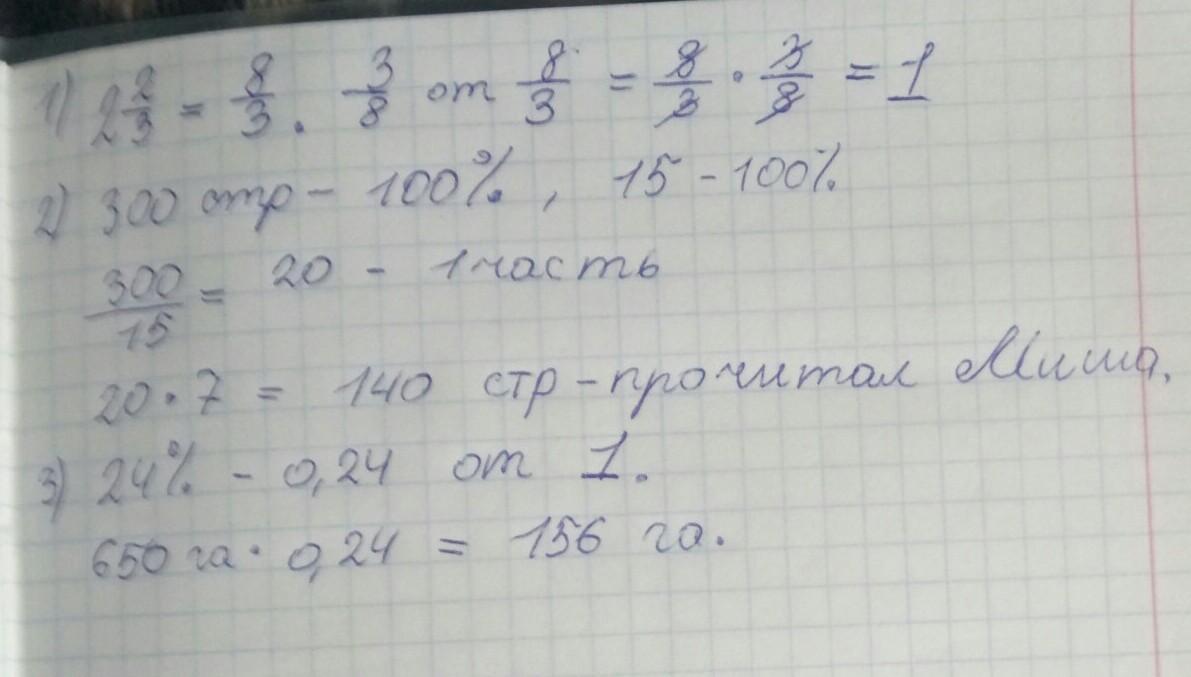 1) 2 2/3 = 8/3. 3/8 от 8/3 = 8/3 · 3/8 = 1
2) 300 стр - 100%, 15 - 100%
300/15 = 20 - 1 часть
20 · 7 = 140 стр - прочитал Миша.
3) 24% - 0,24 от 1.
650 га · 0,24 = 156 га.